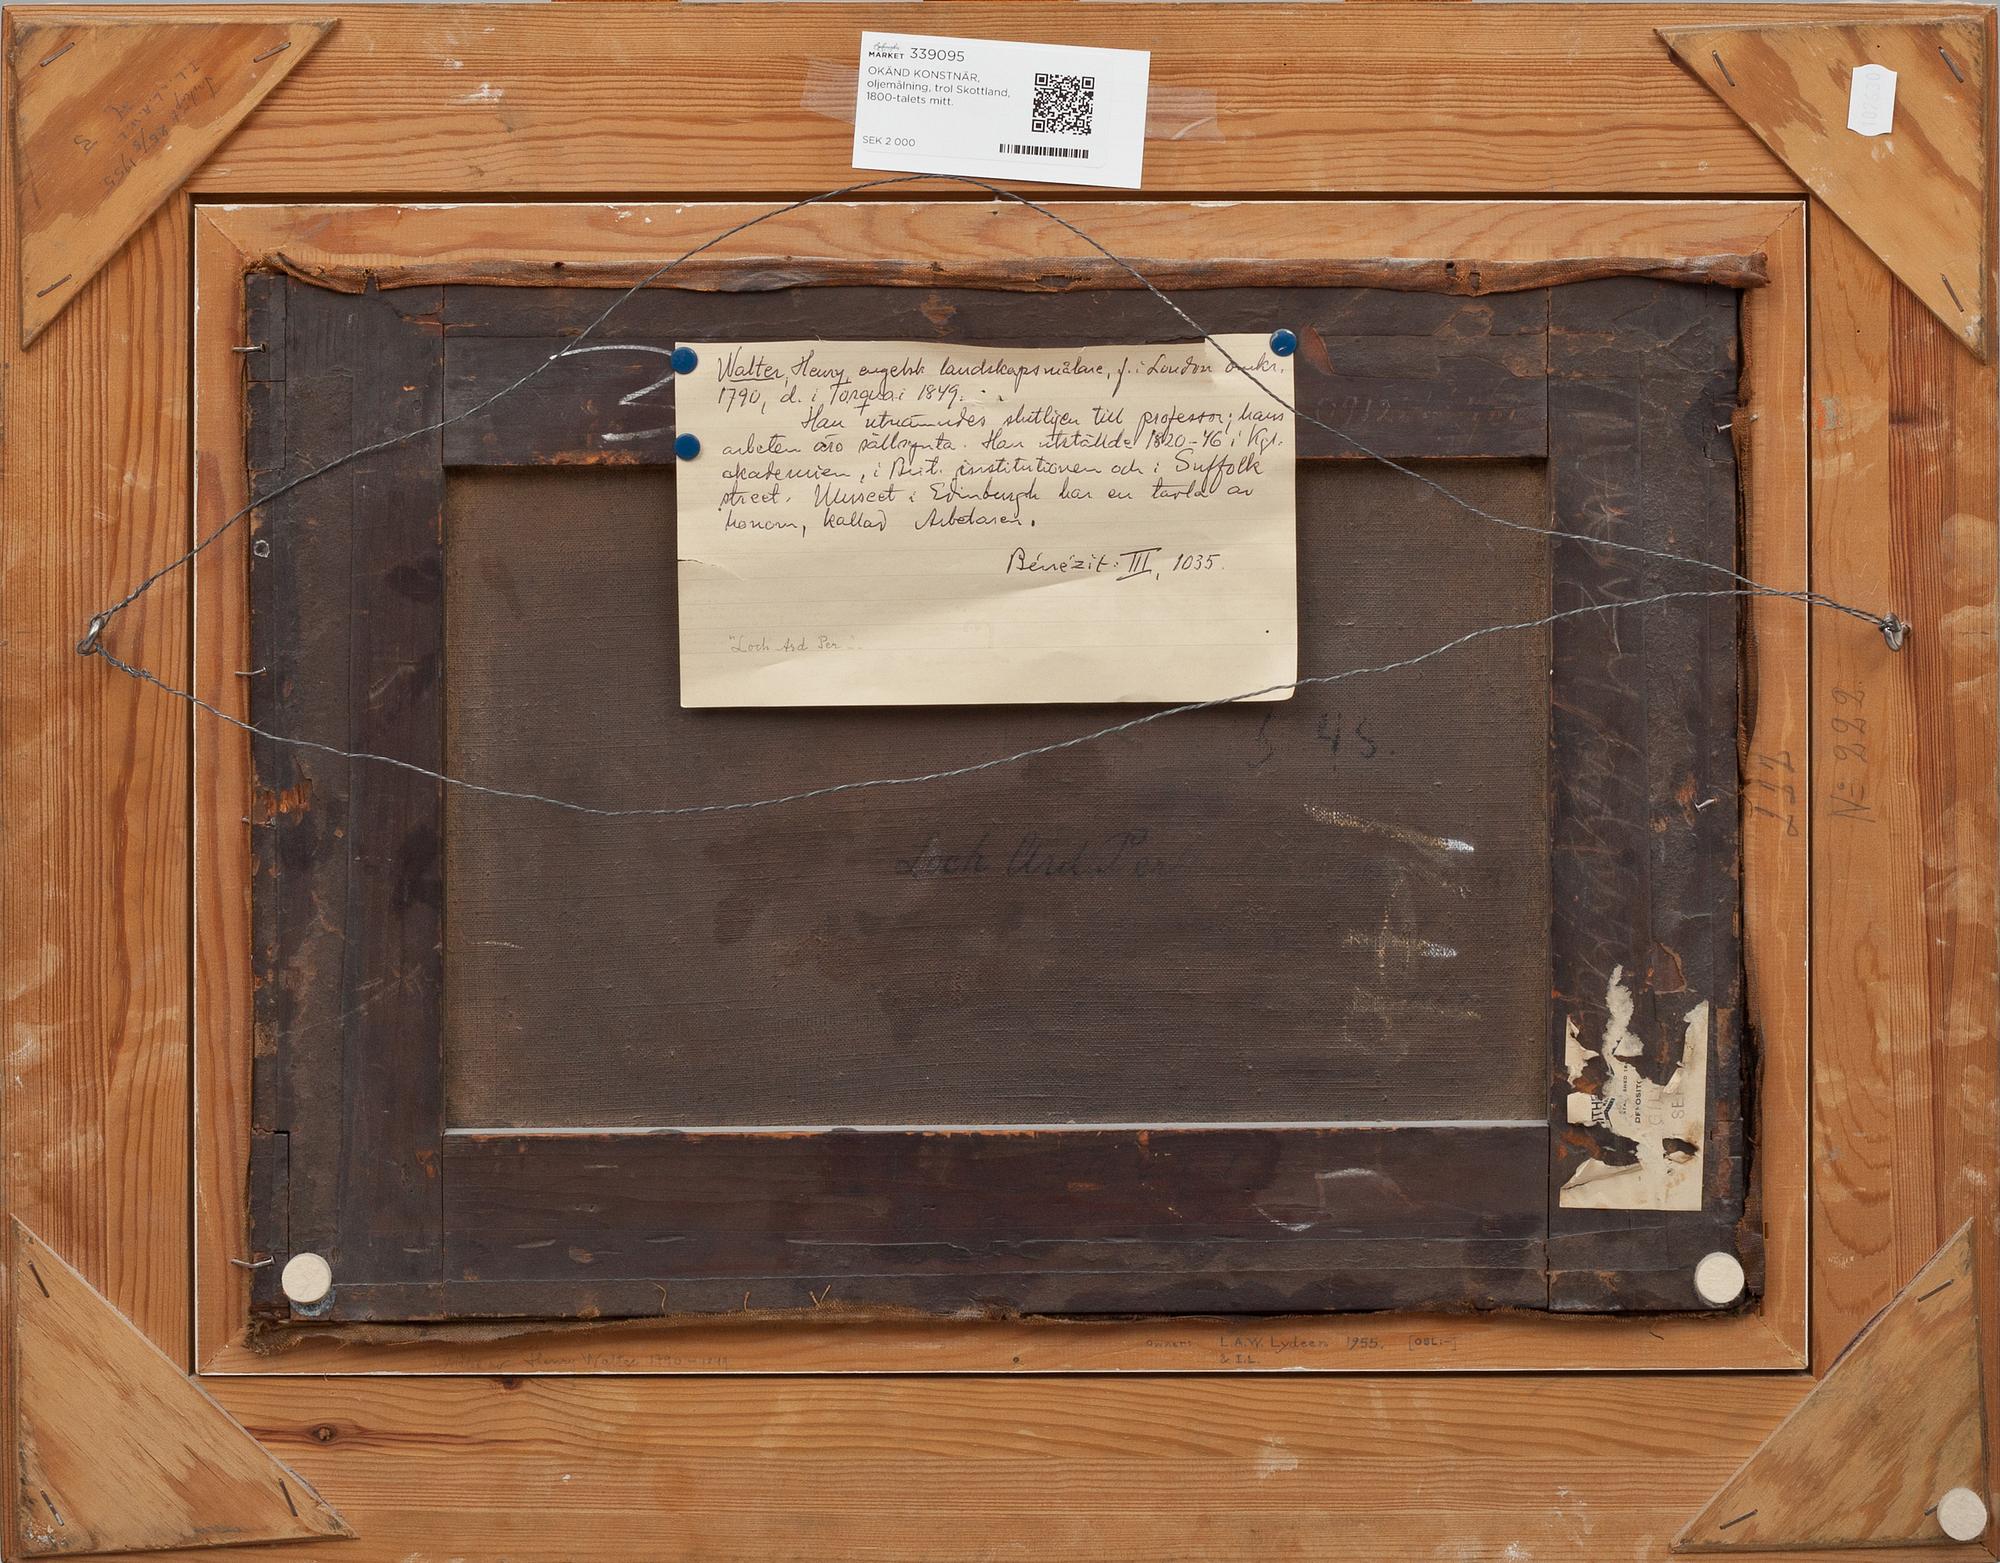 MARKET 339095
OKÄND KONSTNÄR,
oljemålning, trol Skottland,
1800-talets mitt.
SEK 2 000
Walter, Henry, engelsk landskapsmålare, f. i London omkr.
1790, d. i Torquai 1849.
Han utnämndes slutligen till professor; hans
arbeten äro sällsynta. Han utställde 1820-46 i Kgl.
akademien, i Brit. institutionen och i Suffolk
street. Museet i Edinburgh har en tavla av
honom, kallad Arbetaren.
Bénézit: III, 1035.
"Loch Ard Per
3 45.
Loch Ard Per
N= 222
222
DEPOSITO
Henry Walter 1790-1849
owner: L.A.W. Lydeen 1955. [OBL:-]
& I.L.
25/8 1955
3